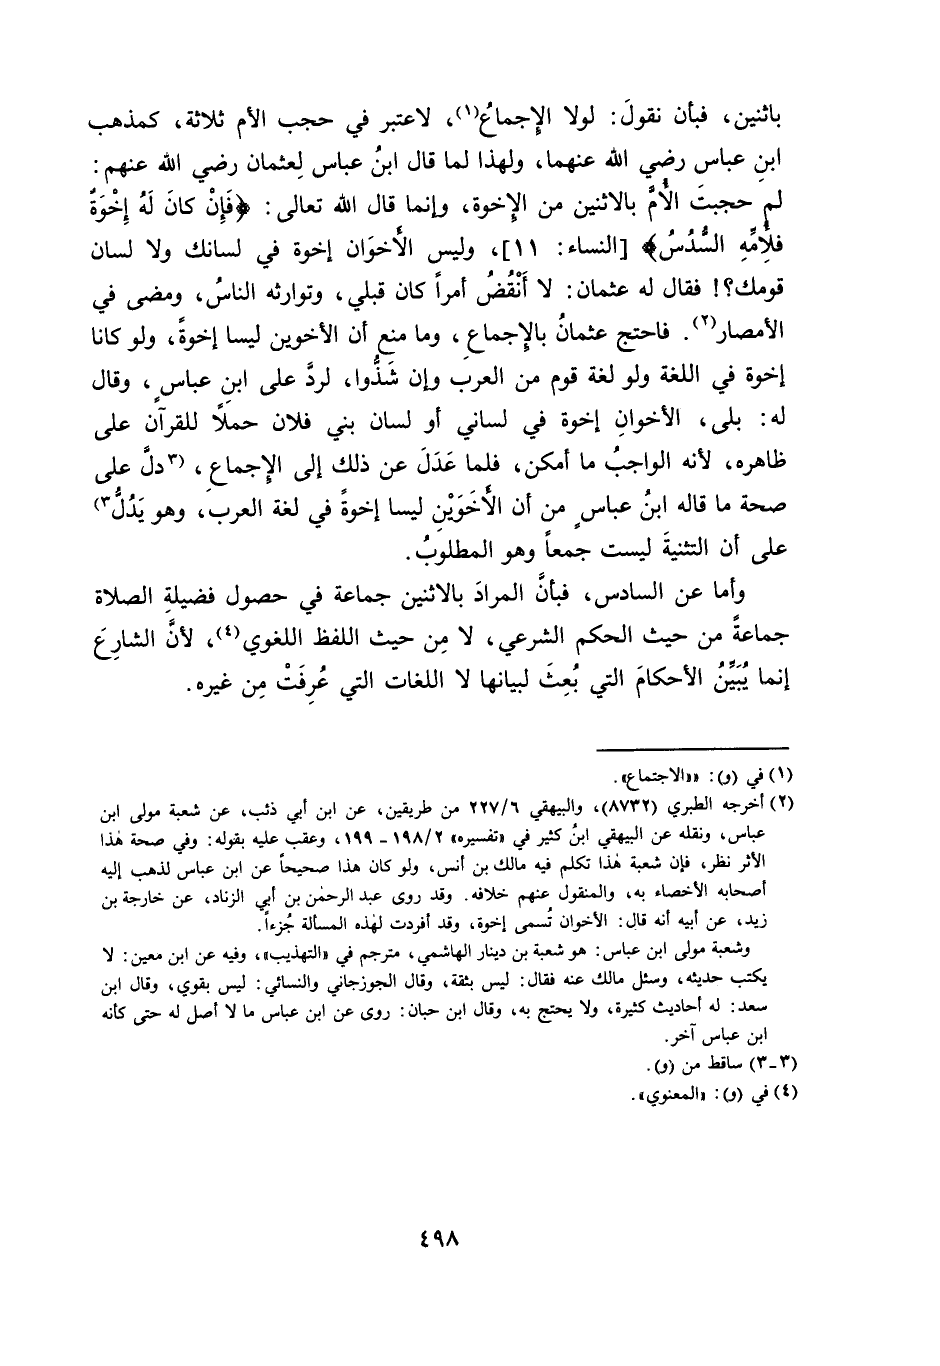 باثنين، فبأن نقولَ: لولا الإِجماعُ(١)، لاعتبر في حجب الأم ثلاثة، كمذهب
ابنِ عباس رضي الله عنهما، ولهذا لما قال ابنُ عباس لِعثمان رضي الله عنهم:
لم حجبتَ الأُمَّ بالاثنين من الإِخوة، وإنما قال الله تعالى: ﴿فَإِنْ كانَ لَهُ إِخْوَةٌ
فلأُمِّهِ السُّدُسُ﴾ [النساء: ١١]، وليس الأَخوَان إخوة في لسانك ولا لسان
قومك؟! فقال له عثمان: لا أَنْقُضُ أمراً كان قبلي، وتوارثه الناسُ، ومضى في
الأمصار(٢). فاحتج عثمانُ بالإِجماعِ، وما منع أن الأخوين ليسا إخوةً، ولو كانا
إخوة في اللغة ولو لغة قوم من العرب وإن شَذُّوا، لردَّ على ابنِ عباسٍ، وقال
له: بلى، الأخوانِ إخوة في لساني أو لسان بني فلان حملًا للقرآن على
ظاهره، لأنه الواجبُ ما أمكن، فلما عَدَلَ عن ذلك إلى الإِجماعِ، (٣دلَّ على
صحة ما قاله ابنُ عباسٍ من أن الأَخَوَيْنِ ليسا إخوةً في لغة العرب، وهو يَدُلُّ٣)
على أن التثنيةَ ليست جمعاً وهو المطلوبُ.
وأما عن السادس، فبأنَّ المرادَ بالاثنين جماعة في حصول فضيلةِ الصلاة
جماعةً من حيث الحكم الشرعي، لا مِن حيث اللفظ اللغوي(٤)، لأنَّ الشارِعَ
إنما يُبَيِّنُ الأحكامَ التي بُعِثَ لبيانها لا اللغات التي عُرِفَتْ مِن غيره.
(١) في (و): «الاجتماع».
(٢) أخرجه الطبري (٨٧٣٢)، والبيهقي ٢٢٧/٦ من طريقين، عن ابن أبي ذئب، عن شعبة مولى ابن
عباس، ونقله عن البيهقي ابنُ كثير في «تفسيره» ١٩٨/٢ - ١٩٩، وعقب عليه بقوله: وفي صحة هٰذا
الأثر نظر، فإن شعبة هٰذا تكلم فيه مالك بن أنس، ولو كان هذا صحيحاً عن ابن عباس لذهب إليه
أصحابه الأخصاء به، والمنقول عنهم خلافه. وقد روى عبد الرحمٰن بن أبي الزناد، عن خارجة بن
زيد، عن أبيه أنه قال: الأخوان تُسمى إخوة، وقد أفردت لهٰذه المسألة جُزءاً.
وشعبة مولى ابن عباس: هو شعبة بن دينار الهاشمي، مترجم في «التهذيب»، وفيه عن ابن معين: لا
يكتب حديثه، وسئل مالك عنه فقال: ليس بثقة، وقال الجوزجاني والنسائي: ليس بقوي، وقال ابن
سعد: له أحاديث كثيرة، ولا يحتج به، وقال ابن حبان: روى عن ابن عباس ما لا أصل له حتى كأنه
ابن عباس آخر.
(٣-٣) ساقط من (و).
(٤) في (و): «المعنوي».
٤٩٨